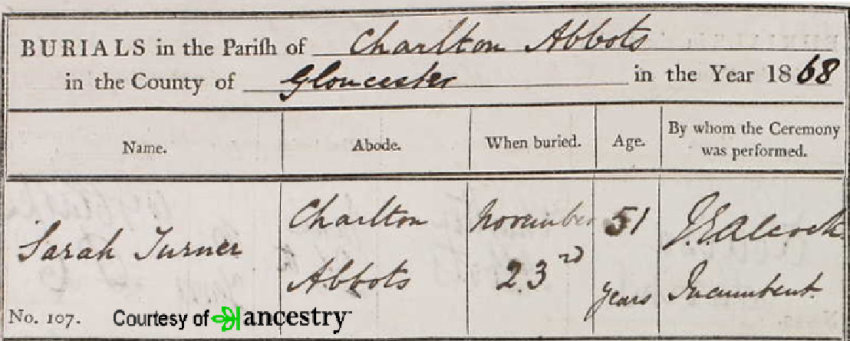 BURIALS in the Parish of Charlton Abbots
in the County of Gloucester in the Year 1868
Name. Abode. When buried. Age. By whom the Ceremony was performed.
Sarah Turner Charlton Abbots November 23rd 51 years J. E. Alcock Incumbent.
No. 107. Courtesy of ancestry